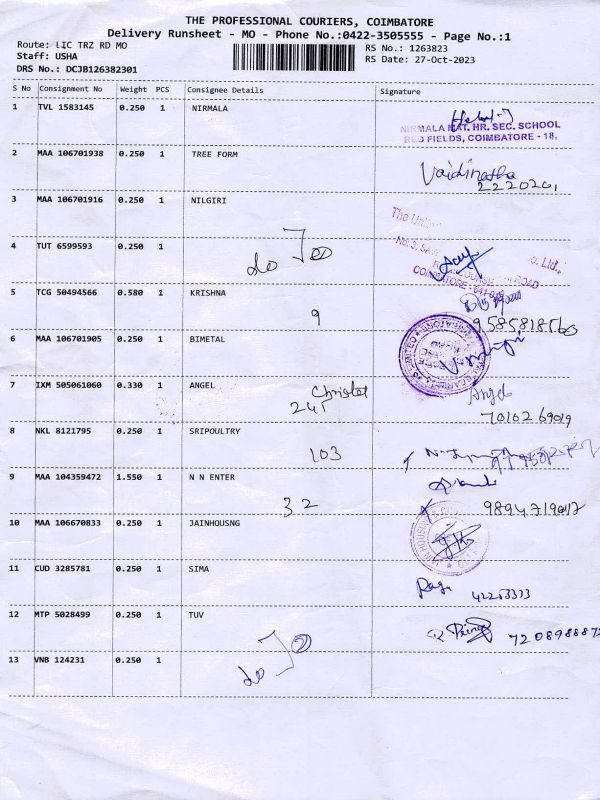 THE PROFESSIONAL COURIERS, COIMBATORE
Delivery Runsheet - MO - Phone No.:0422-3505555 - Page No.:1
Route: LIC TRZ RD MO
RS No.: 1263823
Staff: USHA
RS Date: 27-Oct-2023
DRS No.: DCJB126382301
S No Consignment No Weight PCS Consignee Details Signature
1 TVL 1583145 0.250 1 NIRMALA
NIRMALA MAT. HR. SEC. SCHOOL
RED FIELDS, COIMBATORE - 18.
2 MAA 106701938 0.250 1 TREE FORM
Vaidinatha
2220201
3 MAA 106701916 0.250 1 NILGIRI
The
Co. Ltd.,
4 TUT 6599593 0.250 1
COIMBATORE - 641
5 TCG 50494566 0.580 1 KRISHNA
9
9585818560
6 MAA 106701905 0.250 1 BIMETAL
7 IXM 505061060 0.330 1 ANGEL
Christet
245
Angel
7010269019
8 NKL 8121795 0.250 1 SRIPOULTRY
103
9 MAA 104359472 1.550 1 N N ENTER
32
9894719012
10 MAA 106670833 0.250 1 JAINHOUSNG
11 CUD 3285781 0.250 1 SIMA
42253333
12 MTP 5028499 0.250 1 TUV
7208988872
13 VNB 124231 0.250 1